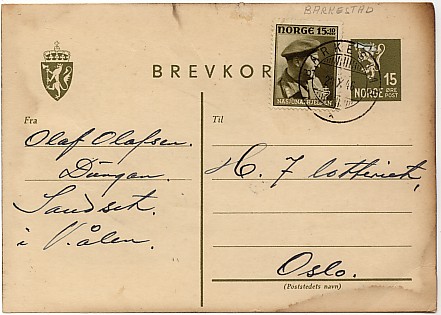 BARKESTAD
BREVKOR
NORGE 15+10
NASJONALHJELPEN
BARKEST
15
NORGE ØRE POST
Fra
Olaf Olafsen.
Düngan.
Sandset.
i V.ålen.
Til
H. 7 lotteriet,
Oslo.
(Poststedets navn)